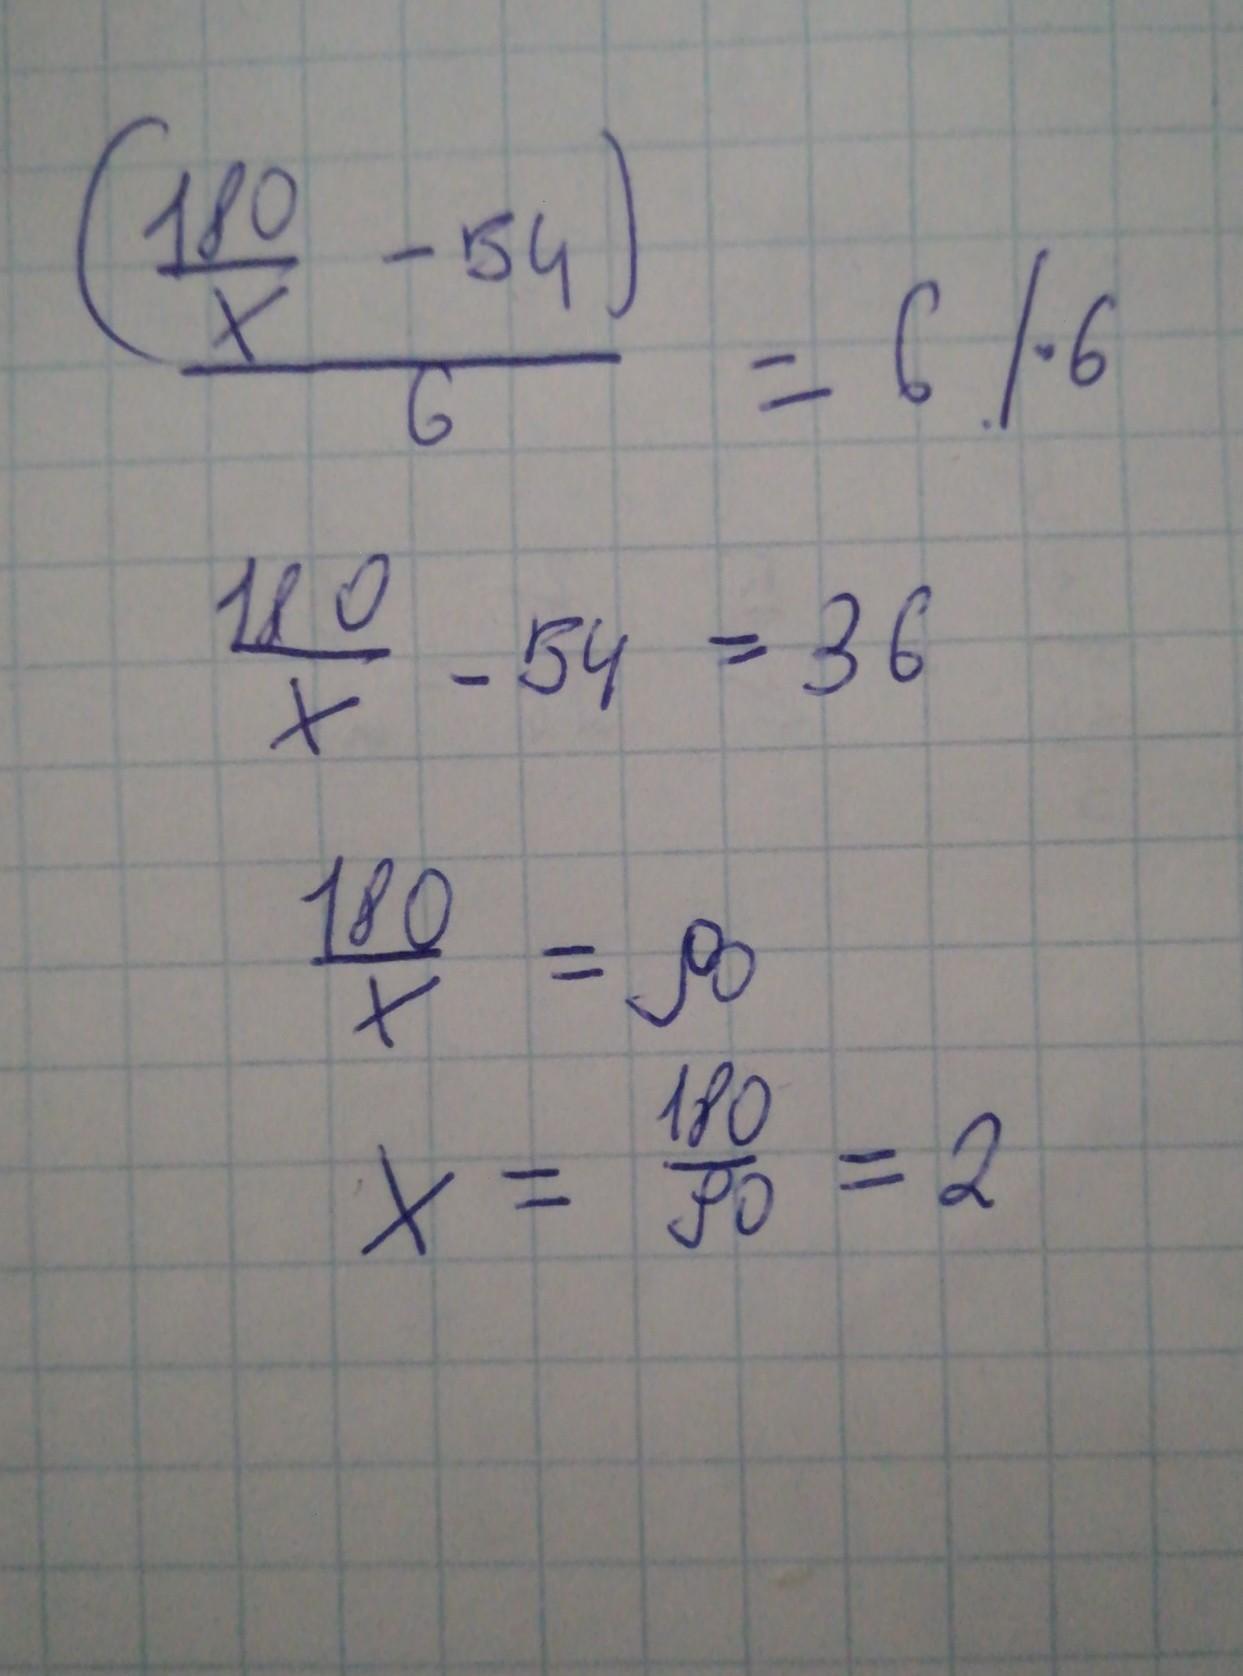 (180/x - 54)/6 = 6 /·6
180/x - 54 = 36
180/x = 90
x = 180/90 = 2